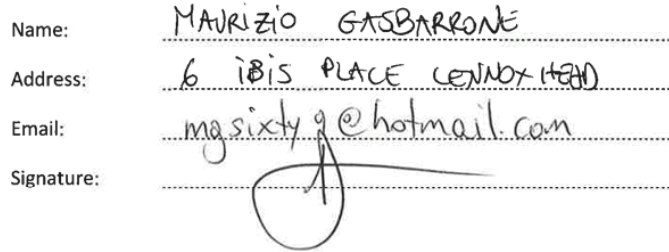 Name: MAURIZIO GASBARRONE
Address: 6 IBIS PLACE LENNOX HEAD
Email: mgsixty9@hotmail.com
Signature: